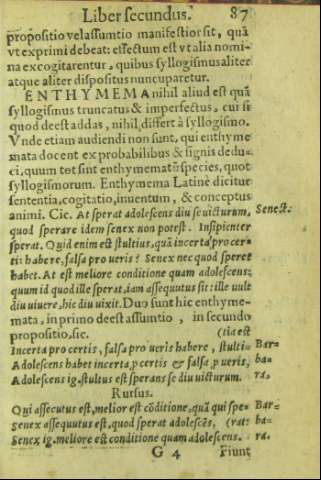 Liber secundus. 87
propositio vel assumtio manifestior sit, quā
vt exprimi debeat: effectum est vt alia nomi-
na excogitarentur, quibus syllogismus aliter
atque aliter dispositus nuncuparetur.
ENTHYMEMA nihil aliud est quā
syllogismus truncatus & imperfectus, cui si
quod deest addas, nihil differt à syllogismo.
Vnde etiam audiendi non sunt, qui enthyme
mata docent ex probabilibus & signis dedu-
ci, quum tot sint enthymematū species, quot
syllogismorum. Enthymema Latinè dicitur
sententia, cogitatio, inuentum, & conceptus
animi. Cic. At sperat adolescens diu se victurum, Senect.
quod sperare idem senex non potest. Insipienter
sperat. Quid enim est stultius, quā incerta pro cer-
tis habere, falsa pro veris? Senex nec quod speret
habet. At est meliore conditione quam adolescens:
quum id quod ille sperat, iam assequutus sit: ille vult
diu viuere, hic diu vixit. Duo sunt hic enthyme-
mata, in primo deest assumtio, in secundo
propositio, sic. (tia est
Incerta pro certis, falsa pro veris habere, stulti- Bar-
Adolescens habet incerta, p certis & falsa, p veris, ba-
Adolescens ig. stultus est sperans se diu victurum. ra.
Rursus.
Qui assecutus est, melior est cōditione, quā qui spe- Bar-
Senex assequutus est, quod sperat adolescēs, (rat: ba-
Senex ig. meliore est conditione quam adolescens. ra.
G 4 Fiunt